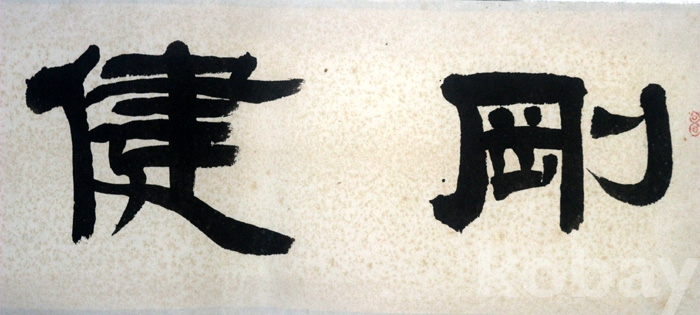 剛健
kobay